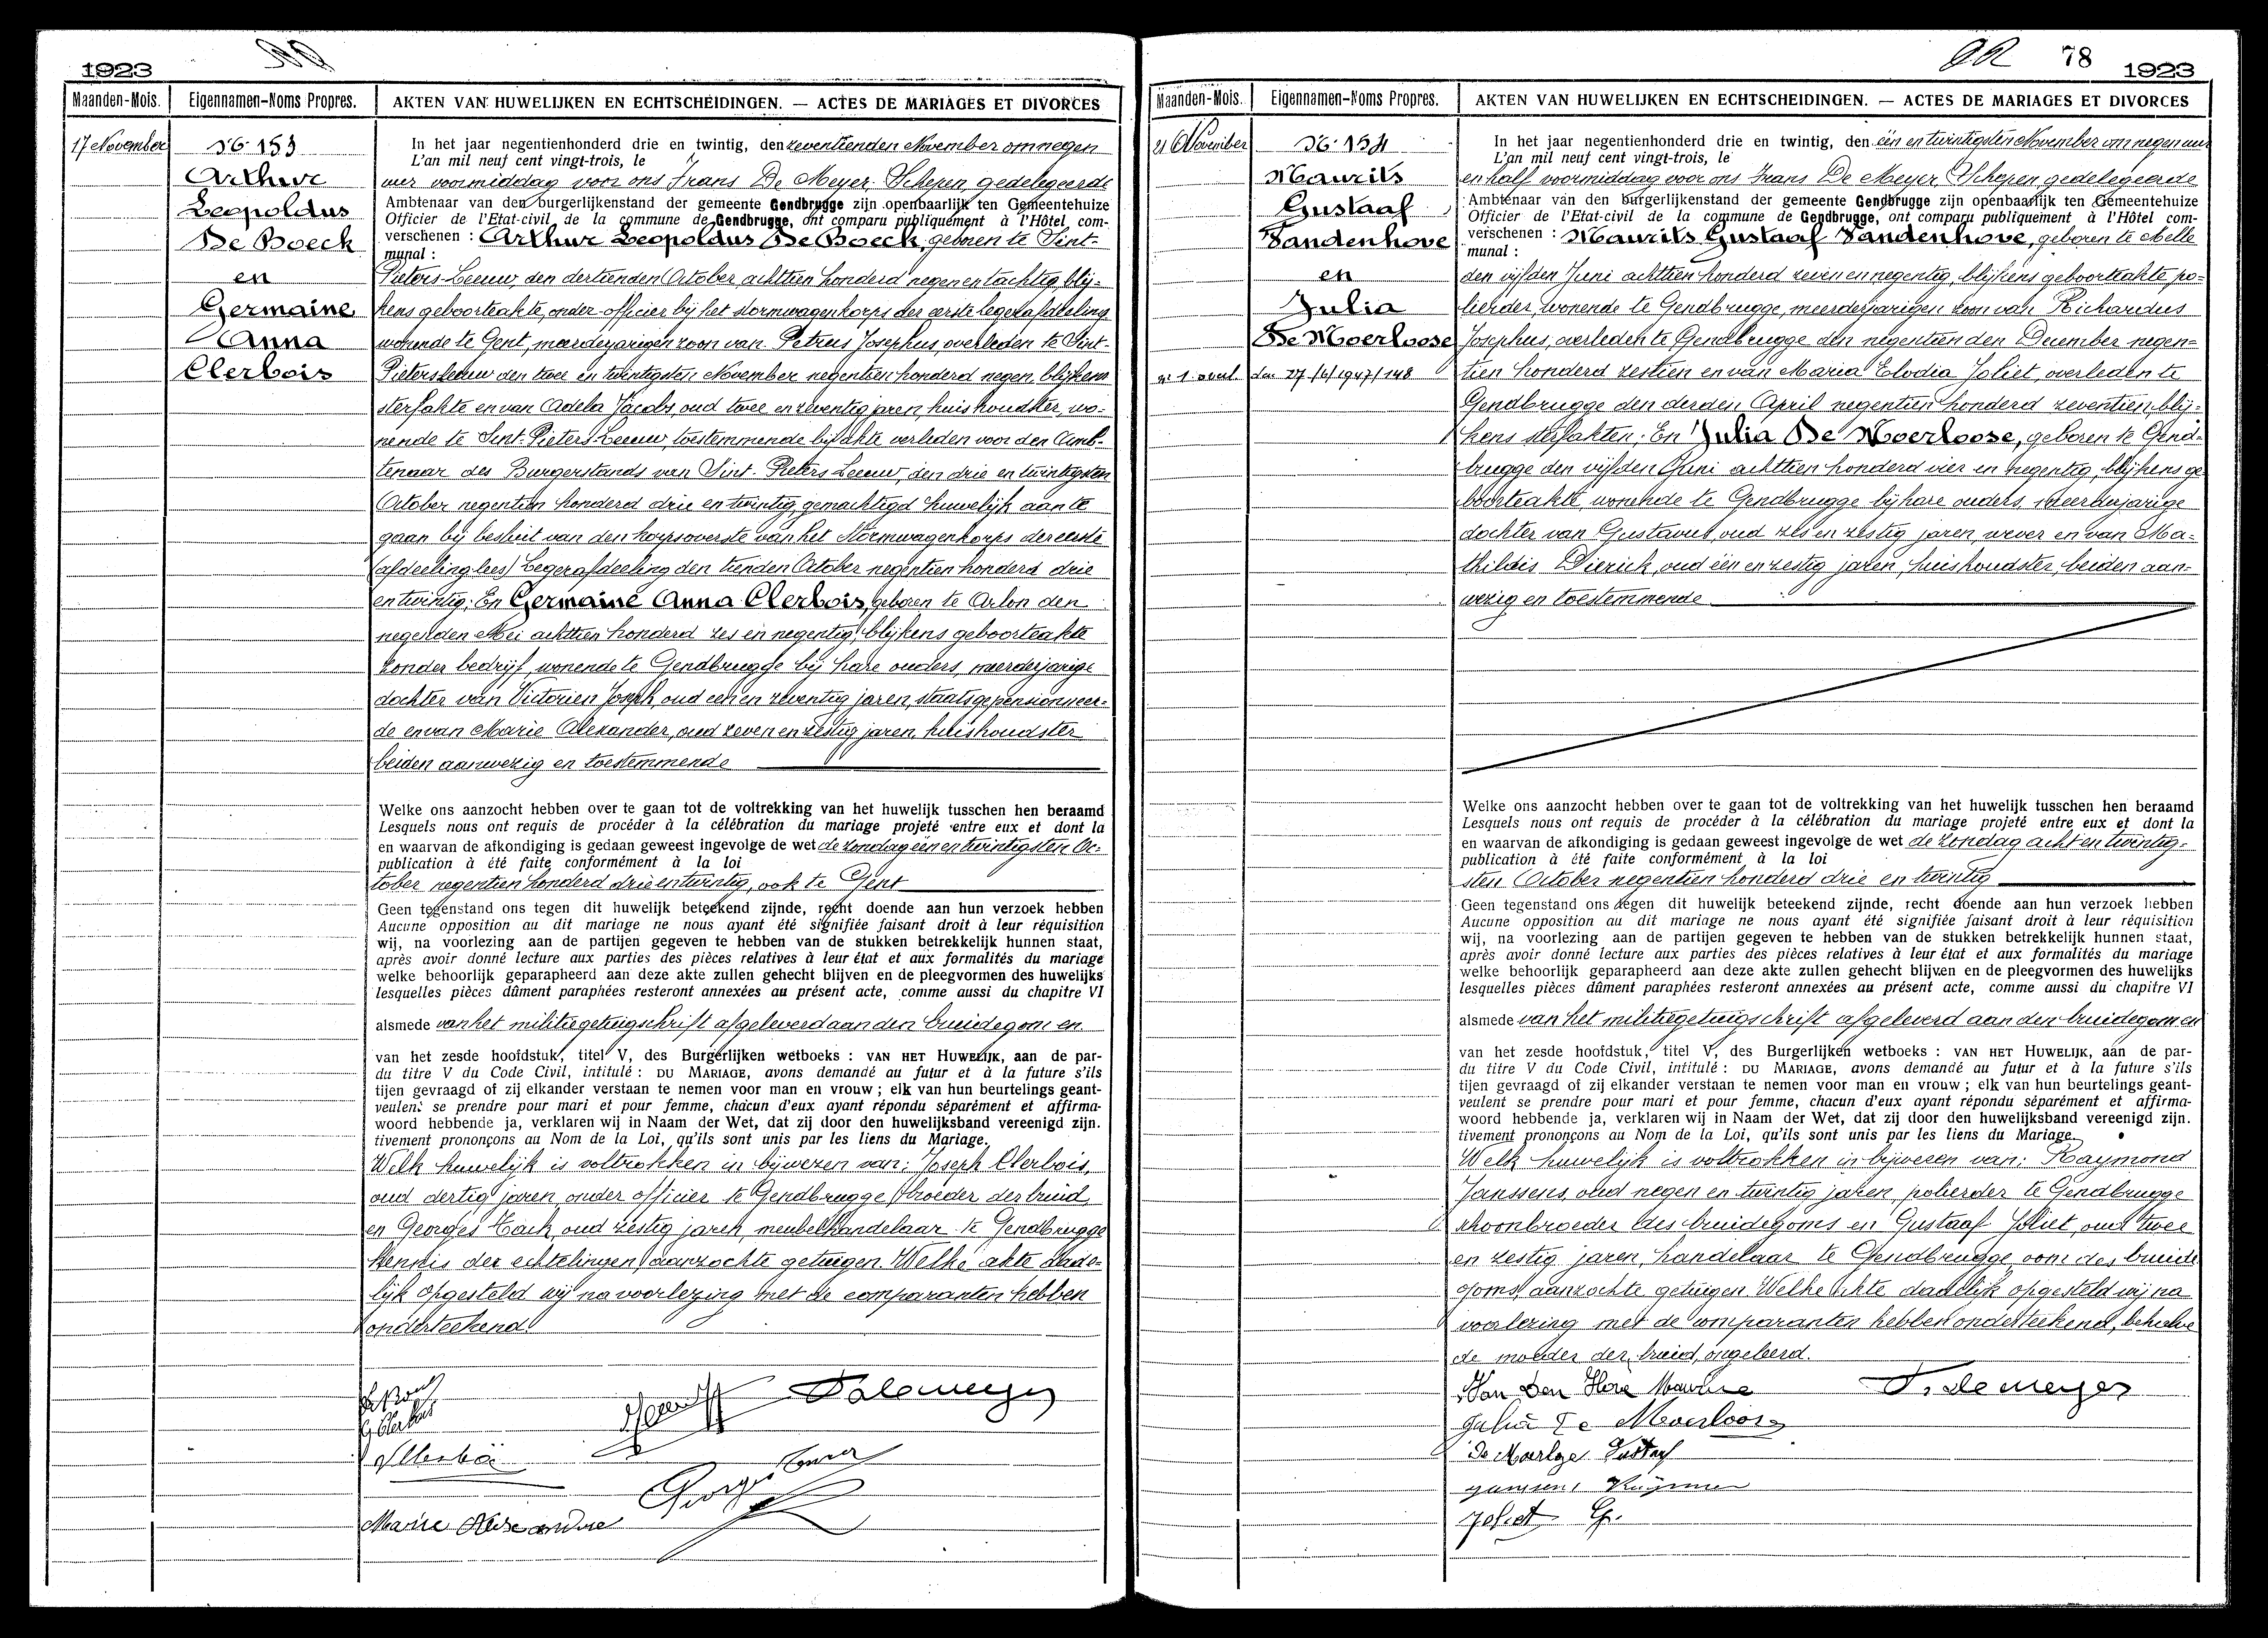 1923
Maanden-Mois.
Eigennamen-Noms Propres.
AKTEN VAN HUWELIJKEN EN ECHTSCHEIDINGEN. — ACTES DE MARIAGES ET DIVORCES
17 November
No 153
Arthur
Leopoldus
De Boeck
en
Germaine
Anna
Clerbois
In het jaar negentienhonderd drie en twintig, den zeventienden November om negen
L'an mil neuf cent vingt-trois, le
uur voormiddag voor ons Frans De Meyer Schepen gedelegeerde
Ambtenaar van den burgerlijkenstand der gemeente Gendbrugge zijn openbaarlijk ten Gemeentehuize
Officier de l'Etat-civil de la commune de Gendbrugge, ont comparu publiquement à l'Hôtel com-
verschenen : Arthur Leopoldus De Boeck, geboren te Sint-
munal :
Pieters-Leeuw, den dertienden October achttien honderd negen en tachtig, blij-
kens geboorteakte, onder-officier bij het stormwagenkorps der eerste legerafdeeling
wonende te Gent, meerderjarigen zoon van Petrus Josephus, overleden te Sint-
Pieters Leeuw den twee en twintigsten November negentien honderd negen, blijkens
sterfakte en van Adela Jacobs, oud twee en zeventig jaren, huishoudster, wo-
nende te Sint-Pieters-Leeuw, toestemmende bij akte verleden voor den Amb-
tenaar des Burgerstands van Sint-Pieters Leeuw, den drie en twintigsten
October negentien honderd drie en twintig, gemachtigd huwelijk aan te
gaan bij besluit van den korpsoverste van het Stormwagenkorps der eerste
(afdeeling lees) Legerafdeeling den tienden October negentien honderd drie
en twintig; En Germaine Anna Clerbois, geboren te Arlon den
negenden Mei achttien honderd zes en negentig, blijkens geboorteakte
zonder bedrijf, wonende te Gendbrugge bij hare ouders, meerderjarige
dochter van Victorien Joseph, oud een en zeventig jaren, staatsgepensionneer-
de en van Marie Alexander, oud zeven en zestig jaren, huishoudster
beiden aanwezig en toestemmende
Welke ons aanzocht hebben over te gaan tot de voltrekking van het huwelijk tusschen hen beraamd
Lesquels nous ont requis de procéder à la célébration du mariage projeté entre eux et dont la
en waarvan de afkondiging is gedaan geweest ingevolge de wet de zondag één en twintigsten Oc-
publication à été faite conformément à la loi
tober negentien honderd drie en twintig, ook te Gent
Geen tegenstand ons tegen dit huwelijk beteekend zijnde, recht doende aan hun verzoek hebben
Aucune opposition au dit mariage ne nous ayant été signifiée faisant droit à leur réquisition
wij, na voorlezing aan de partijen gegeven te hebben van de stukken betrekkelijk hunnen staat,
après avoir donné lecture aux parties des pièces relatives à leur état et aux formalités du mariage
welke behoorlijk geparapheerd aan deze akte zullen gehecht blijven en de pleegvormen des huwelijks
lesquelles pièces dûment paraphées resteront annexées au présent acte, comme aussi du chapitre VI
alsmede van het militiegetuigschrift afgeleverd aan den bruidegom en
van het zesde hoofdstuk, titel V, des Burgerlijken wetboeks : VAN HET HUWELIJK, aan de par-
du titre V du Code Civil, intitulé : DU MARIAGE, avons demandé au futur et à la future s'ils
tijen gevraagd of zij elkander verstaan te nemen voor man en vrouw ; elk van hun beurtelings geant-
veulent se prendre pour mari et pour femme, chacun d'eux ayant répondu séparément et affirma-
woord hebbende ja, verklaren wij in Naam der Wet, dat zij door den huwelijksband vereenigd zijn.
tivement prononçons au Nom de la Loi, qu'ils sont unis par les liens du Mariage.
Welk huwelijk is voltrokken in bijwezen van: Joseph Clerbois,
oud dertig jaren, onder officier te Gendbrugge broeder der bruid
en Georges Tack, oud zestig jaren, meubelhandelaar te Gendbrugge
kennis der echtelingen, aanzochte getuigen. Welke akte dade-
lijk opgesteld wij na voorlezing met de comparanten hebben
onderteekend.
De Boeck
G Clerbois
Marie Alexandre
Georges
78
1923
Maanden-Mois.
Eigennamen-Noms Propres.
AKTEN VAN HUWELIJKEN EN ECHTSCHEIDINGEN. — ACTES DE MARIAGES ET DIVORCES
21 November
No 154
Maurits
Gustaaf
Vandenhove
en
Julia
De Moerloose
nr 1 overl. den 27/4/1947/148
In het jaar negentienhonderd drie en twintig, den één en twintigsten November om negen uur
L'an mil neuf cent vingt-trois, le
en half voormiddag voor ons Frans De Meyer Schepen gedelegeerde
Ambtenaar van den burgerlijkenstand der gemeente Gendbrugge zijn openbaarlijk ten Gemeentehuize
Officier de l'Etat-civil de la commune de Gendbrugge, ont comparu publiquement à l'Hôtel com-
verschenen : Maurits Gustaaf Vandenhove, geboren te Melle
munal :
den vijfden Juni achttien honderd zeven en negentig, blijkens geboorteakte po-
lierder, wonende te Gendbrugge, meerderjarigen zoon van Richardus
Josephus, overleden te Gendbrugge den negentienden December negen-
tien honderd zestien en van Maria Elodia Joliet, overleden te
Gendbrugge den derden April negentien honderd zeventien, blij-
kens sterfakten; En Julia De Moerloose, geboren te Gend-
brugge den vijfden Juni achttien honderd vier en negentig, blijkens ge-
boorteakte, wonende te Gendbrugge bij hare ouders, meerderjarige
dochter van Gustavus, oud zes en zestig jaren, wever en van Ma-
thildis Dierick, oud één en zestig jaren, huishoudster, beiden aan-
wezig en toestemmende
Welke ons aanzocht hebben over te gaan tot de voltrekking van het huwelijk tusschen hen beraamd
Lesquels nous ont requis de procéder à la célébration du mariage projeté entre eux et dont la
en waarvan de afkondiging is gedaan geweest ingevolge de wet de zondag acht en twintig-
publication à été faite conformément à la loi
sten October negentien honderd drie en twintig
Geen tegenstand ons tegen dit huwelijk beteekend zijnde, recht doende aan hun verzoek hebben
Aucune opposition au dit mariage ne nous ayant été signifiée faisant droit à leur réquisition
wij, na voorlezing aan de partijen gegeven te hebben van de stukken betrekkelijk hunnen staat,
après avoir donné lecture aux parties des pièces relatives à leur état et aux formalités du mariage
welke behoorlijk geparapheerd aan deze akte zullen gehecht blijven en de pleegvormen des huwelijks
lesquelles pièces dûment paraphées resteront annexées au présent acte, comme aussi du chapitre VI
alsmede van het militiegetuigschrift afgeleverd aan den bruidegom en
van het zesde hoofdstuk, titel V, des Burgerlijken wetboeks : VAN HET HUWELIJK, aan de par-
du titre V du Code Civil, intitulé : DU MARIAGE, avons demandé au futur et à la future s'ils
tijen gevraagd of zij elkander verstaan te nemen voor man en vrouw ; elk van hun beurtelings geant-
veulent se prendre pour mari et pour femme, chacun d'eux ayant répondu séparément et affirma-
woord hebbende ja, verklaren wij in Naam der Wet, dat zij door den huwelijksband vereenigd zijn.
tivement prononçons au Nom de la Loi, qu'ils sont unis par les liens du Mariage.
Welk huwelijk is voltrokken in bijwezen van: Raymond
Janssens, oud negen en twintig jaren, polierder te Gendbrugge
schoonbroeder des bruidegoms en Gustaaf Joliet, oud twee
en zestig jaren, handelaar te Gendbrugge, oom des bruide
goms, aanzochte getuigen. Welke akte dadelijk opgesteld wij na
voorlezing met de comparanten hebben onderteekend, behalve
de moeder der bruid, ongeleerd.
Van Den Hove Maurice
F. de meyer
Julia De Moerloose
Gustaf
Joliet G.